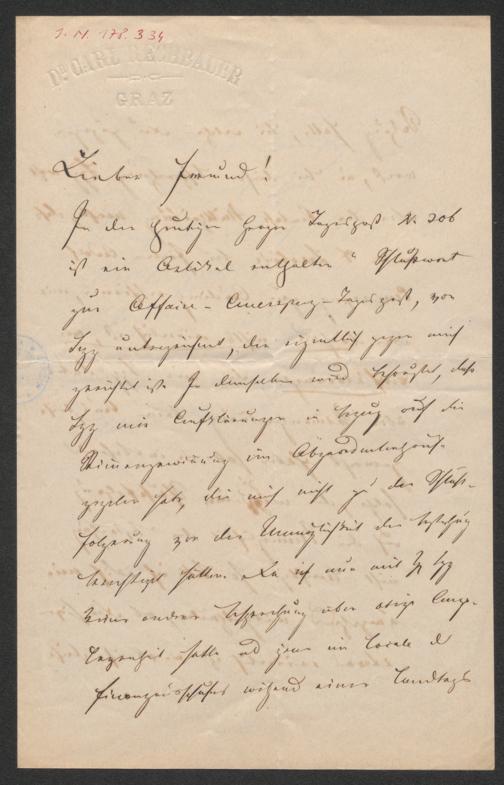 I. N. 178.334
DR CARL RECHBAUER
GRAZ
Lieber Freund!
In der heutigen Grazer Tagespost N. 206
ist ein Artikel enthalten "Schlußwort
zur Affaire - Tagespost, von
unterzeichnet, der eigentlich gegen mich
gerichtet ist. In demselben wird behauptet, daß
mir Aufklärungen in bezug auf die
im Abgeordnetenhause
gegeben habe, die mich nicht zu der Schluß-
folgerung von der Unmöglichkeit der
berechtigt hätten. Da ich nun mit
keine andere Besprechung über obige Ange-
legenheit hatte als jene im Locale d
Finanzausschußes während eines Landtags